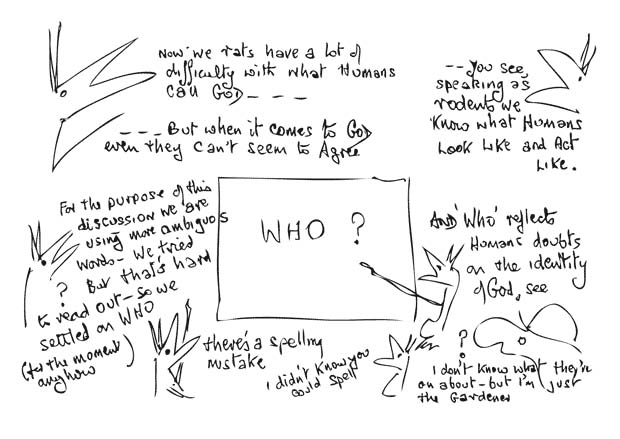 Now we rats have a lot of
difficulty with what Humans
call GOD - - -
- - - But when it comes to GOD
even they can't seem to Agree
-- You see,
speaking as
rodents we
know what Humans
LOOK LIKE and ACT
LIKE.
For the purpose of this
discussion we are
using more ambiguos
words - We tried
?
But that's hard
to read out - so we
settled on WHO
(for the moment
anyhow)
WHO ?
AND 'WHO' reflects
Humans doubts
on the identity
of God, see
there's a spelling
mistake
I didn't know you
could spell
?
I don't know what they're
on about - but I'm just
the Gardener